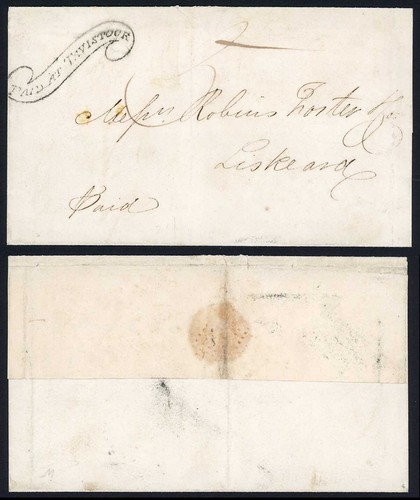 PAID AT TAVISTOCK
Messrs Robins Foster &
Liskeard
Paid